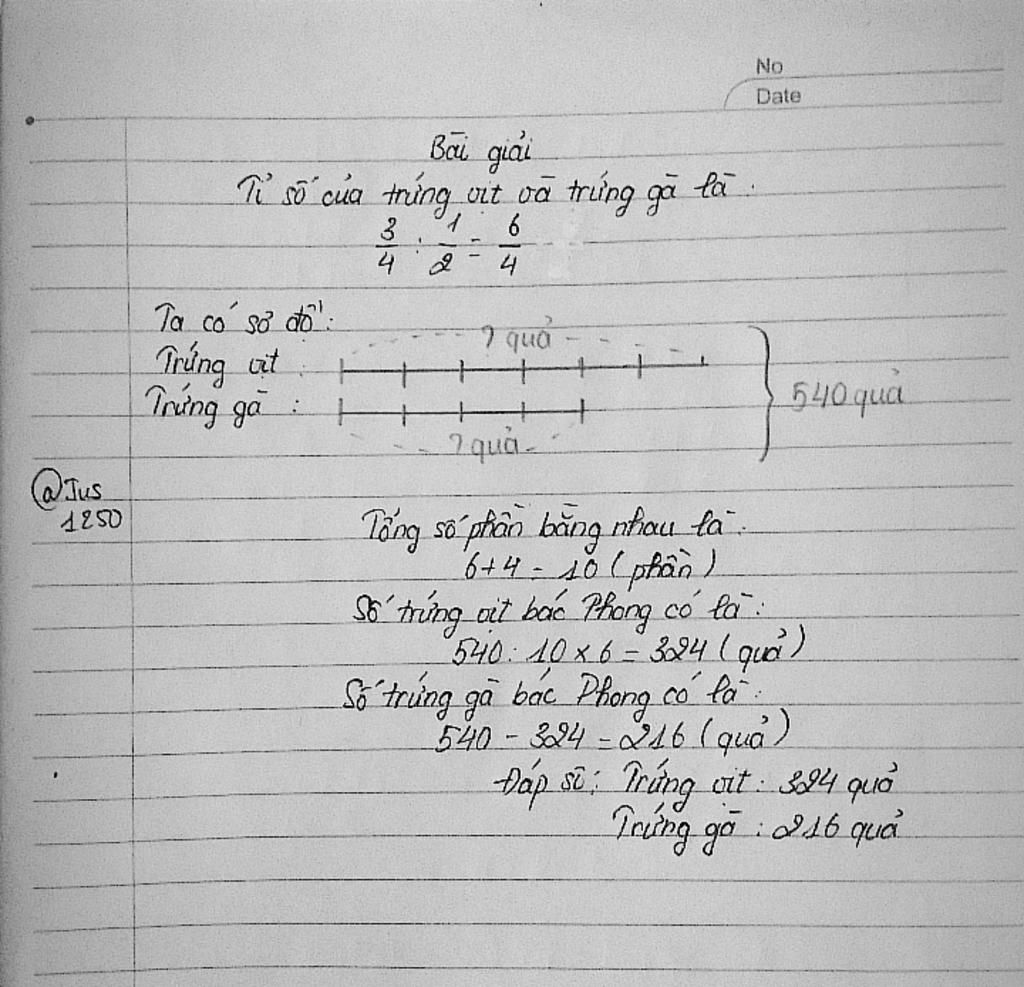 No
Date
Bài giải
Tỉ số của trứng vịt và trứng gà là:
3/4 : 1/2 = 6/4
Ta có sơ đồ:
? quả
Trứng vịt :
Trứng gà :
540 quả
? quả
@Jus
1250
Tổng số phần bằng nhau là:
6+4 = 10 (phần)
Số trứng vịt bác Phong có là:
540 : 10 x 6 = 324 (quả)
Số trứng gà bác Phong có là:
540 - 324 = 216 (quả)
Đáp số: Trứng vịt : 324 quả
Trứng gà : 216 quả